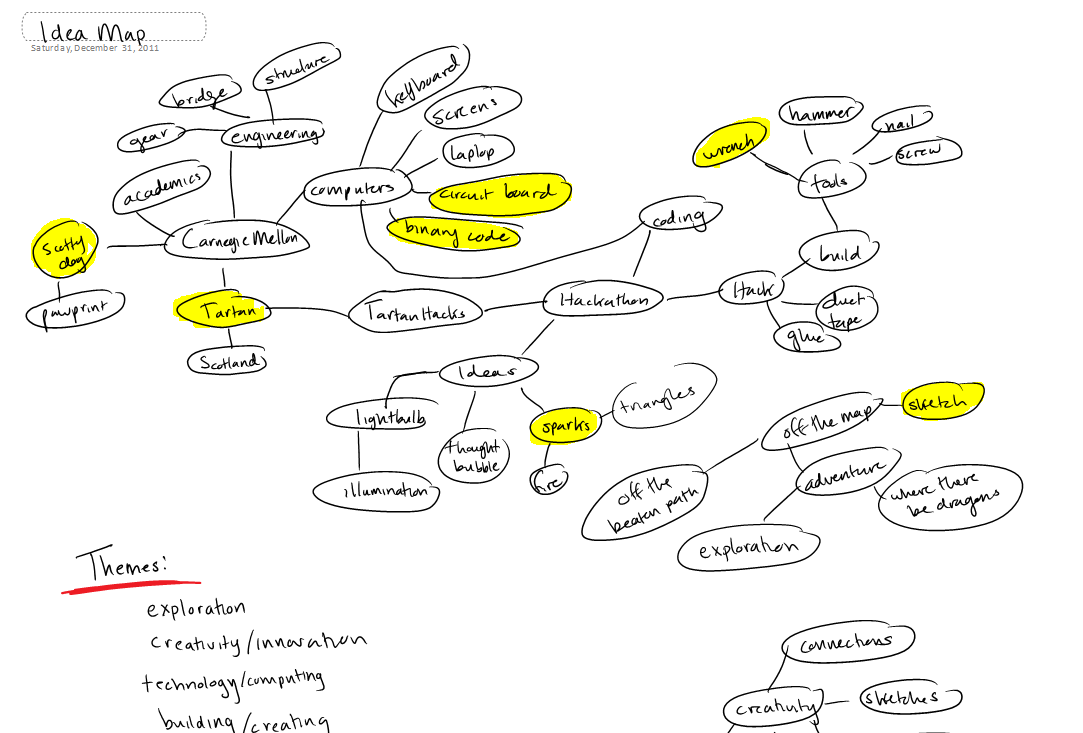 Idea Map
Saturday, December 31, 2011
structure
bridge
gear
engineering
academics
Carnegie Mellon
Scotty
dog
pawprint
Tartan
Scotland
keyboard
screens
laptop
computers
circuit board
binary code
coding
TartanHacks
Hackathon
Hack
duct
tape
glue
build
tools
wrench
hammer
nail
screw
Ideas
lightbulb
illumination
thought
bubble
sparks
triangles
fire
off the map
sketch
off the
beaten path
adventure
where there
be dragons
exploration
Themes:
exploration
creativity/innovation
technology/computing
building/creating
connections
creativity
sketches